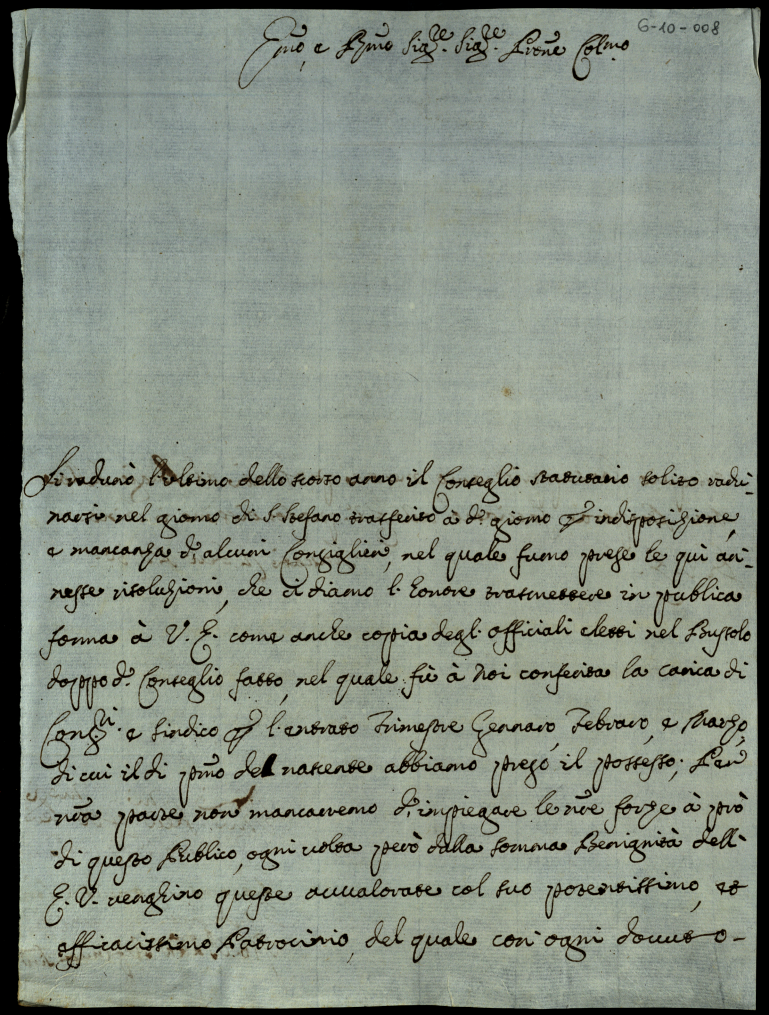 6-10-008
Em̃o, e Rm̃o Sig.re Sig.re Pron̄e Col.mo
Si radunò l'ultimo dello scorso anno il Conseglio statutario solito radu-
narsi nel giorno di S. Stefano trasferito à d.o giorno per indisposizione,
e mancanza d'alcuni Consiglieri, nel quale furno prese le qui an-
nesse risoluzioni, che ci diamo l'honore trasmettere in publica
forma à V. E. come anche copia degl'officiali eletti nel Bussolo
doppo d.o Conseglio fatto, nel quale fù à Noi conferita la carica di
Cong.ri e Sindico per l'entrato Trimestre Gennaro, Febraro, e Marzo,
di cui il di pm̃o del nascente abbiamo preso il possesso; Per
nr̃a parte non mancaremo d'impiegare le nr̃e forze à prò
di questo Publico, ogni volta però dalla somma Benignità dell'
E. V. venghino queste avvalorate col suo potentissimo, et
efficacissimo Patrocinio, del quale con ogni dovuto o-